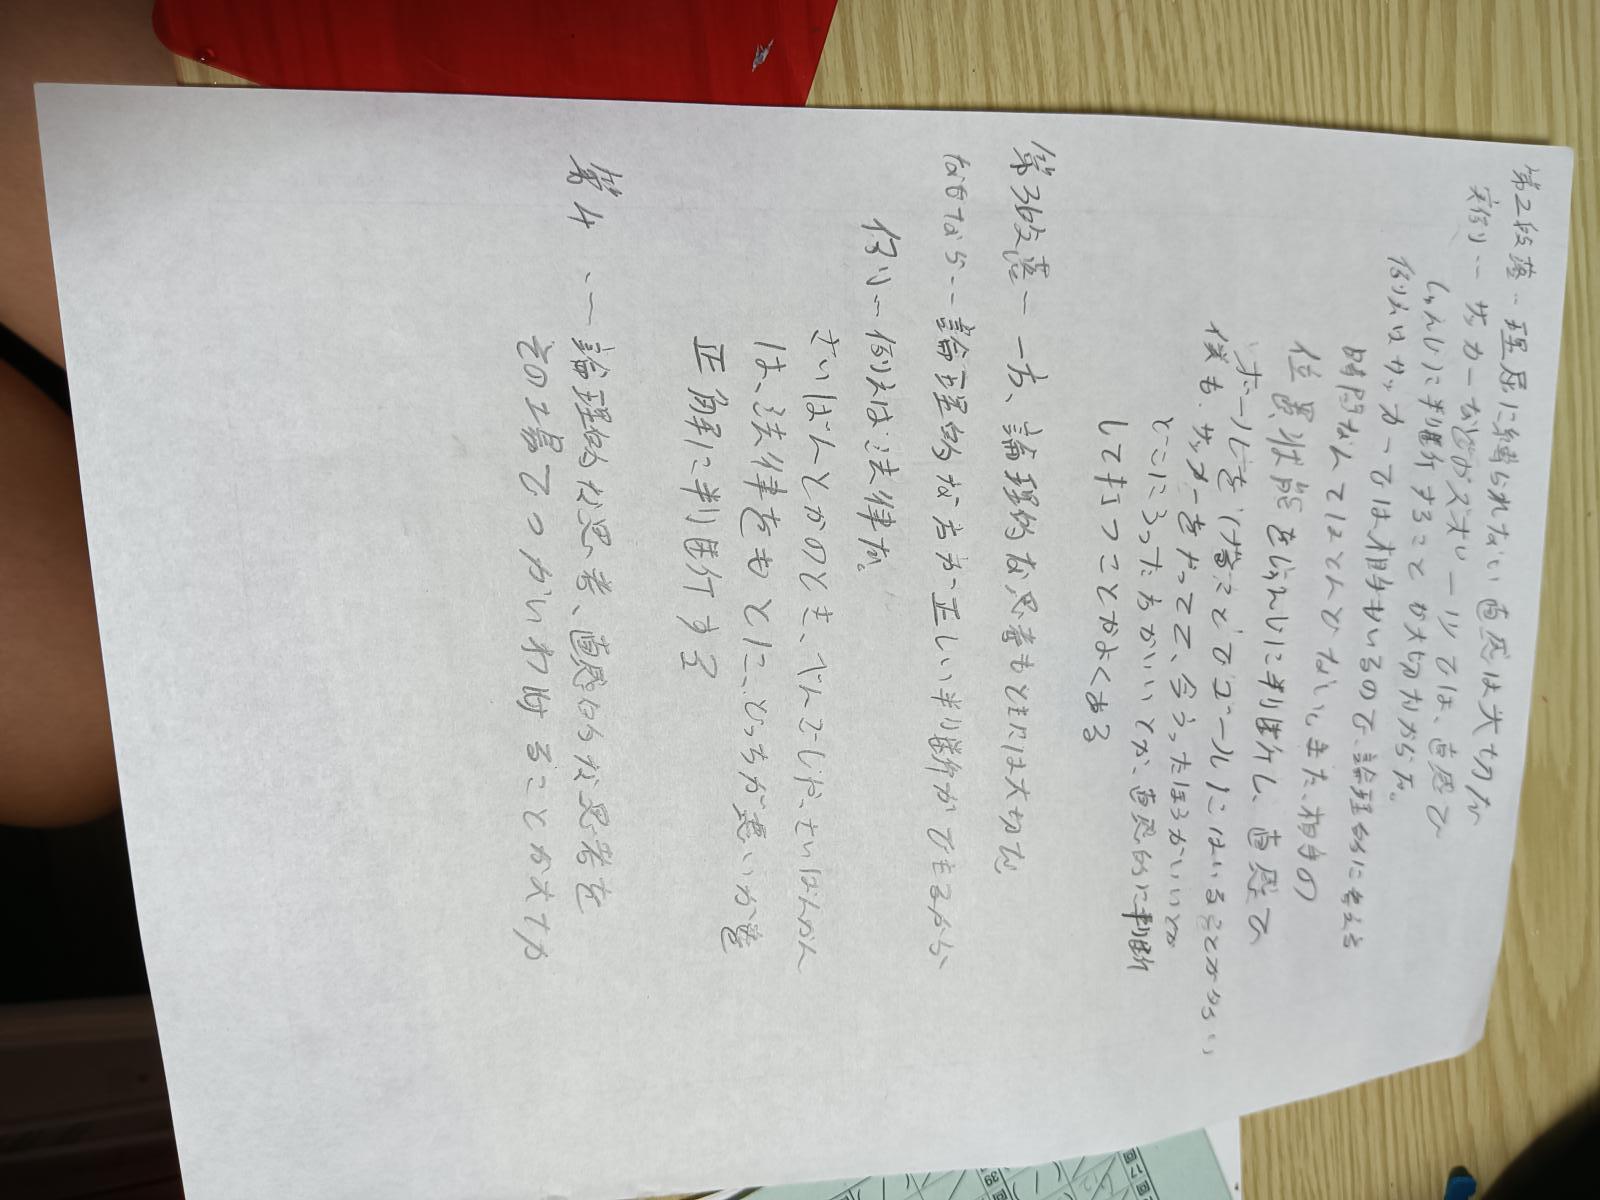 第2段落‥理屈に縛られない直感は大切だ
実例‥サッカーなどのスポーツでは、直感で
しゅんじに判断することが大切だからだ。
例えばサッカーでは相手もいるので、論理的に考える
時間なんてほとんどないし、また、相手の
位置、状態をしゅんじに判断し、直感で
ボールをけることでゴールにはいることがおおい
僕も、サッカーをやってて、今うったほうがいいとか
とこにうったらがいいとか、直感的に判断
して打つことがよくある
第3段落ー一方、論理的な思考もときには大切だ
なぜなら‥論理的な方が正しい判断ができるから
例)‥例えば法律だ。
さいばんとかのとき、べんごしや、さいばんかん
は、法律をもとに、どっちが悪いか
正解に判断する
第4 ‥論理的な思考、直感的な思考を
その場でつかいわけることが大切だ